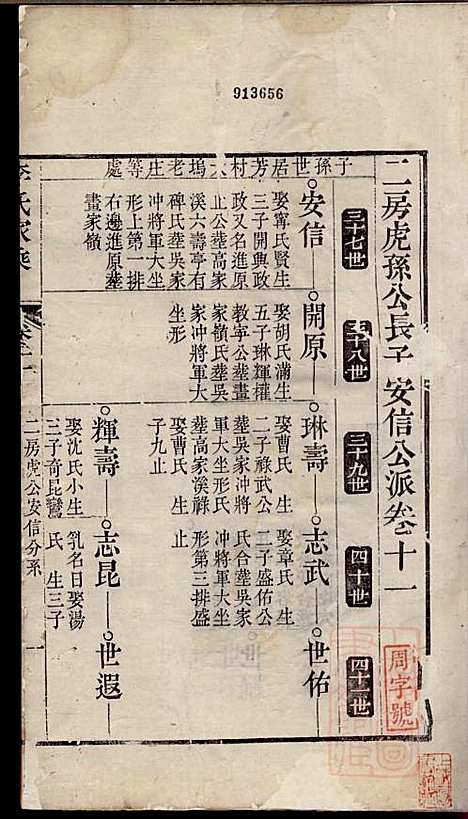 913656
二房虎孫公長子安信公派卷十一
三十七世
三十八世
三十九世
四十世
四十一世
子孫世居芳村大塢老庄等處
安信
娶寗氏賢生
三子開典政
政又名進原
止公塟高家
溪六壽亭有
碑氏塟吳家
冲將軍大坐
形上第一排
右邊進原塟
畫家嶺
開原
娶胡氏滿生
五子琳輝權
教寧公塟畫
家嶺氏塟吳
家冲將軍大
坐形
琳壽
娶曹氏 生
二子祿武公
塟吳家冲將
軍大坐形氏
塟高家溪祿
娶曹氏 生
子九止
志武
娶章氏 生
二子盛佑公
氏合塟吳家
冲將軍大坐
形第三排盛
止
世佑
輝壽
娶沈氏小生
三子奇昆鸞
志昆
乳名日娶湯
氏 生三子
世遐
李氏家乘
卷十一
二房虎公安信分系
一
周字號